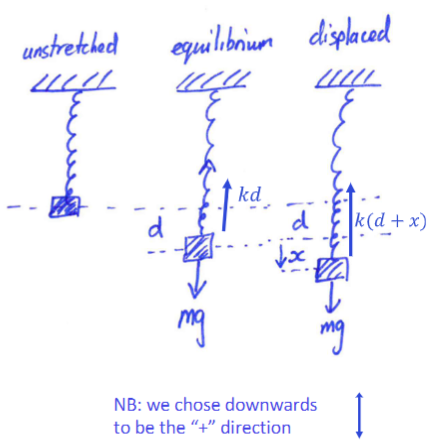 unstretched equilibrium displaced
kd
d d k(d + x)
x
mg mg
NB: we chose downwards
to be the “+” direction